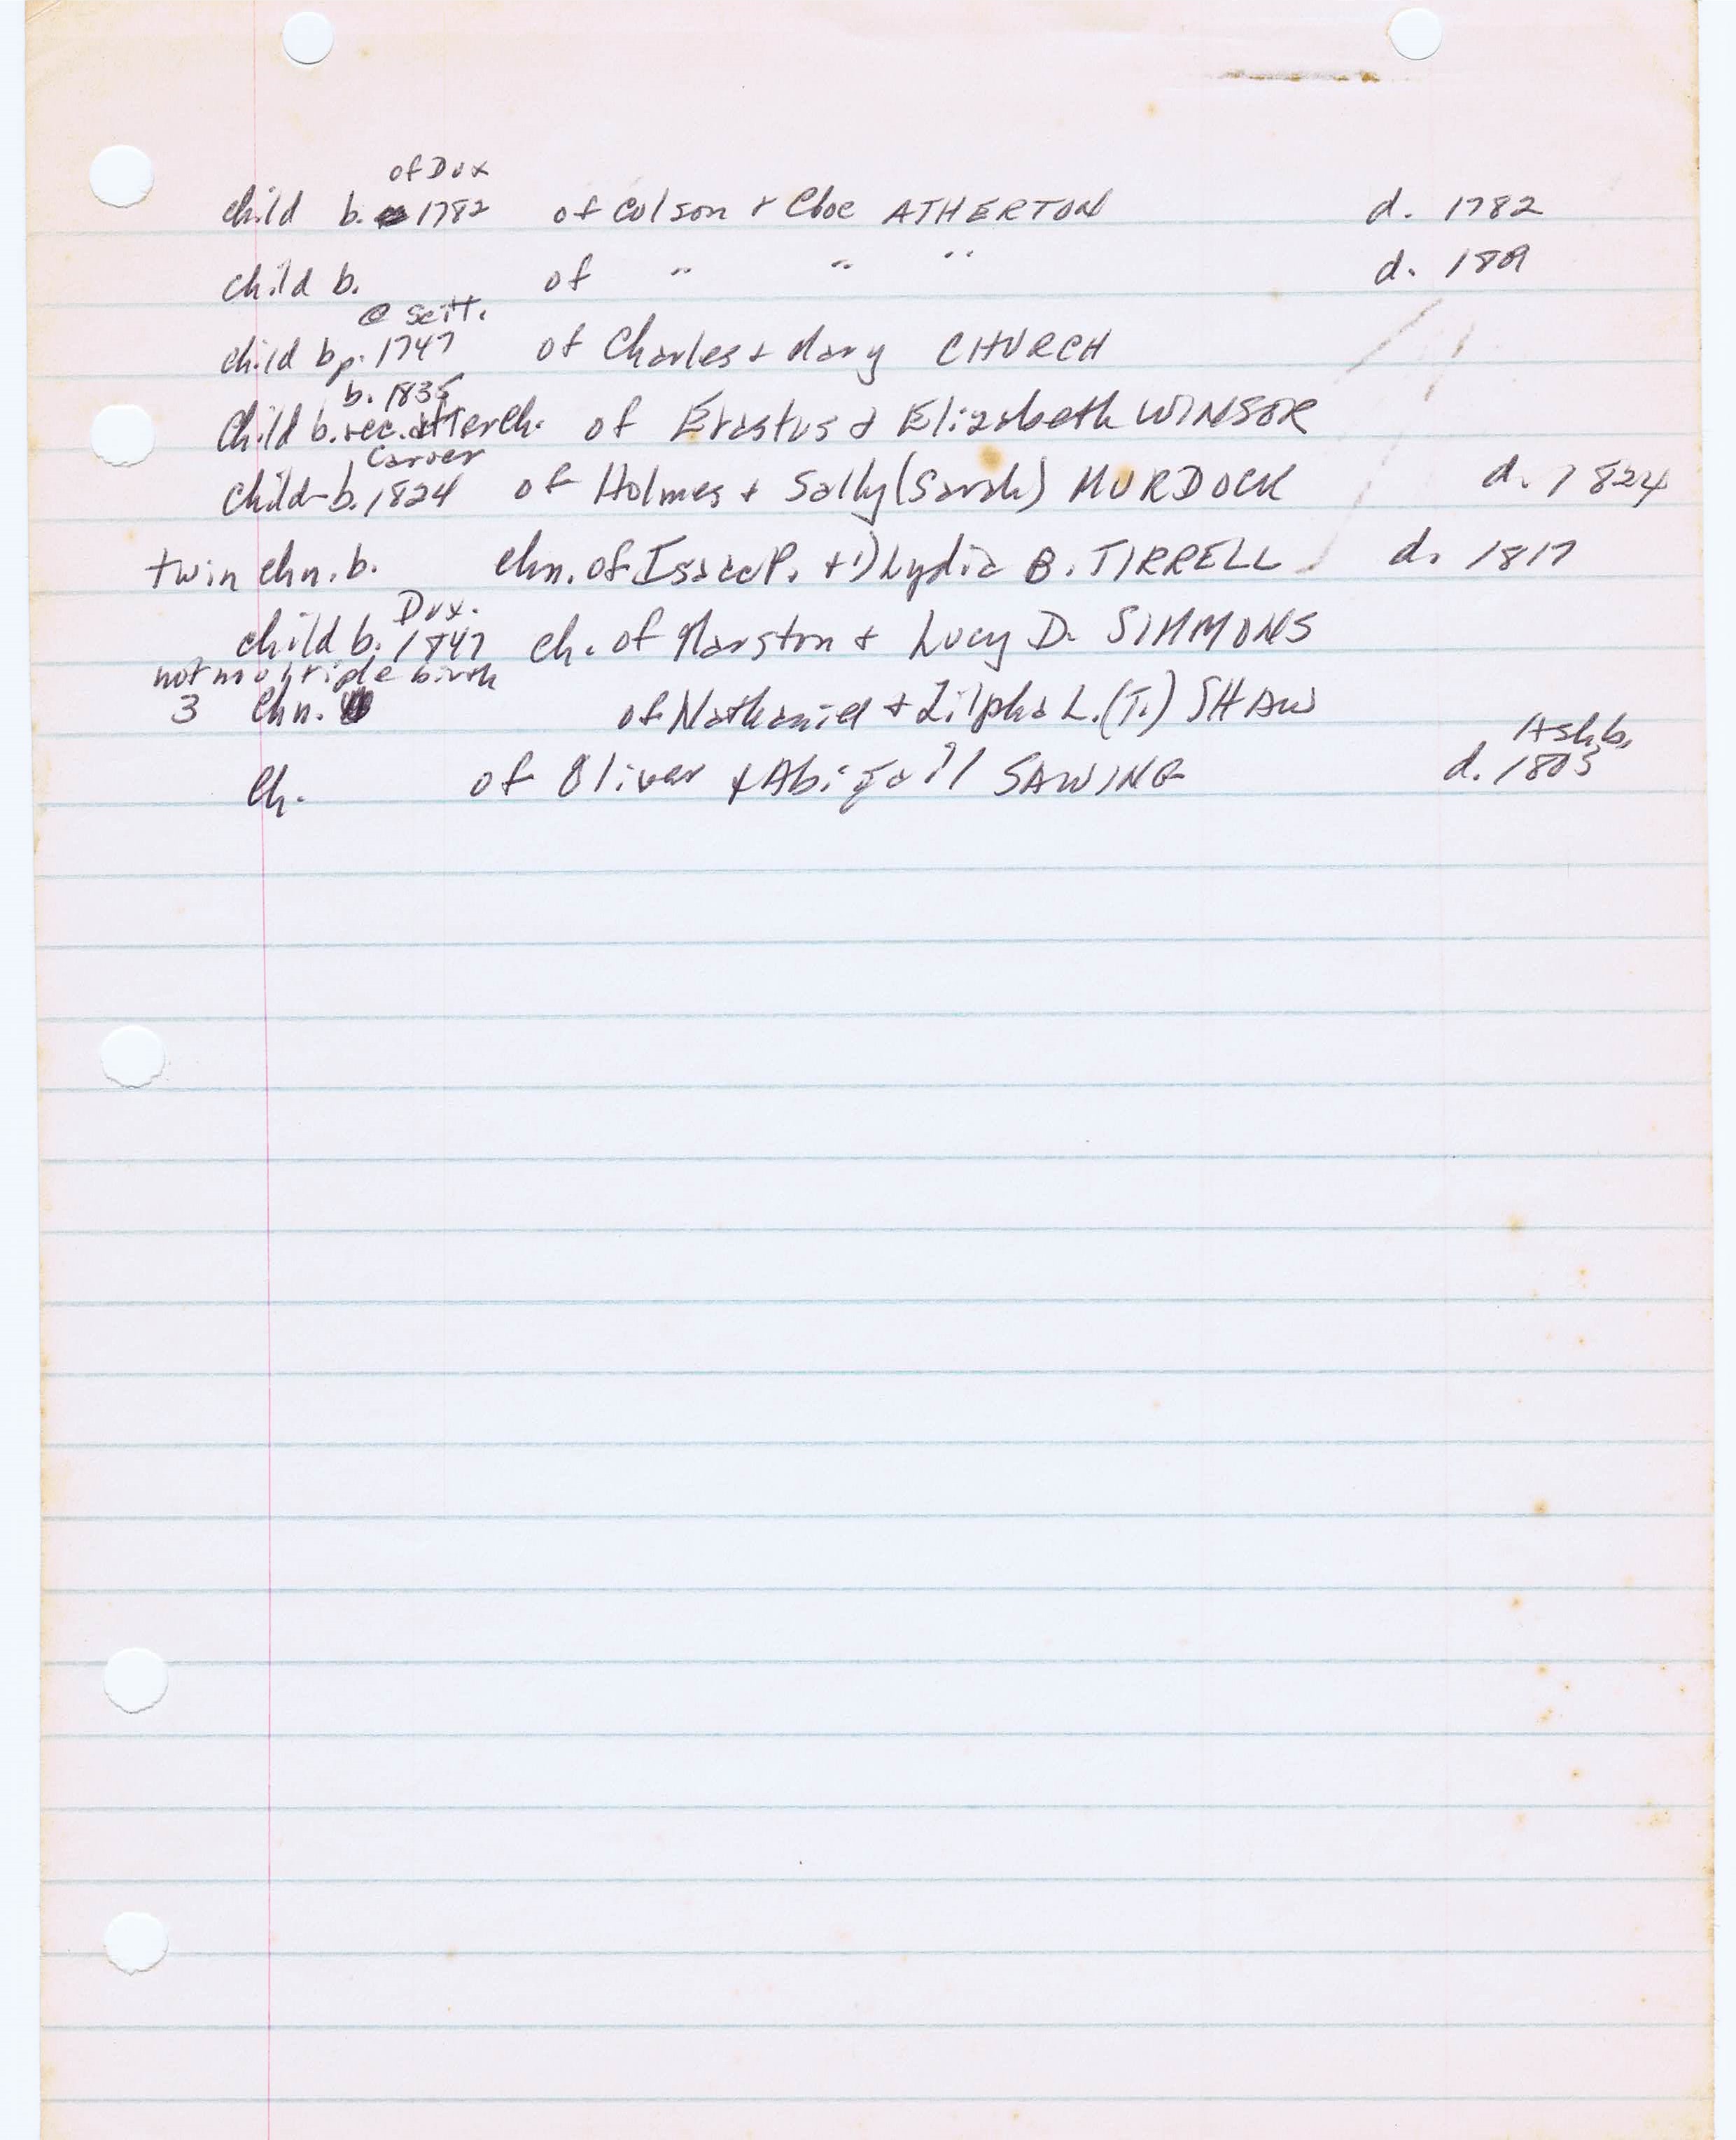 of Dux
child b. 1782 of Colson + Cloe ATHERTON d. 1782
child b. of " " " d. 1801
@ Scit.
child bp. 1747 of Charles + Mary CHURCH
b. 1835
Child b. rec. after ch. of Erastus & Elizabeth WINSOR
Carver
child b. 1824 of Holmes + Sally (Sarah) MURDOCK d. 1824
twin chn. b. chn. of Isaac P. + 1) Lydia B. TIRRELL d. 1817
Dux.
child b. 1847 ch. of Marston + Lucy D. SIMMONS
not multiple birth
3 Chn. of Nathaniel + Zilpha L. (T.) SHAW
Ashb.
Ch. of Oliver + Abigail SAWING d. 1803